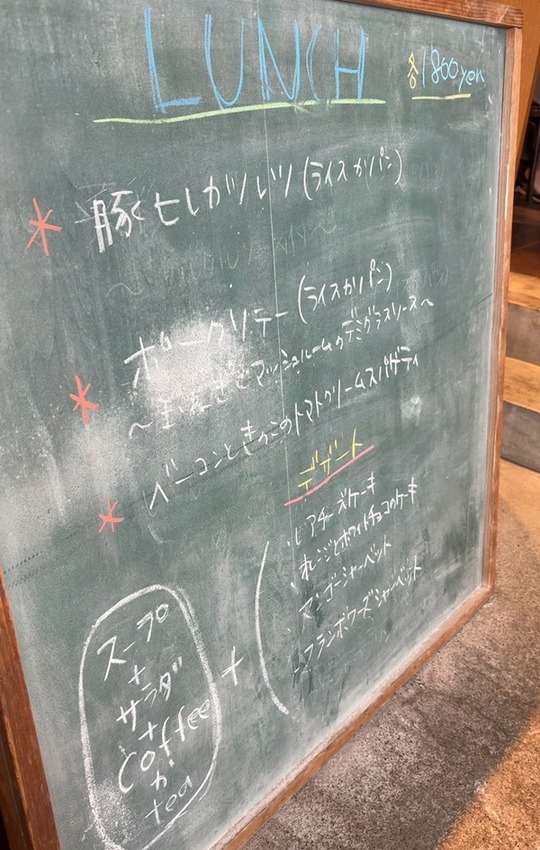 LUNCH
各1800yen
* 豚ヒレカツレツ(ライスかパン)
* ポークソテー(ライスかパン)
マッシュルームのデミグラスソース~
* ベーコンときのこのトマトクリームスパゲティ
デザート
・レアチーズケーキ
・オレンジとホワイトチョコのケーキ
・マンゴーシャーベット
・フランボワーズシャーベット
スープ
+
サラダ
+
Coffee
か
tea
+